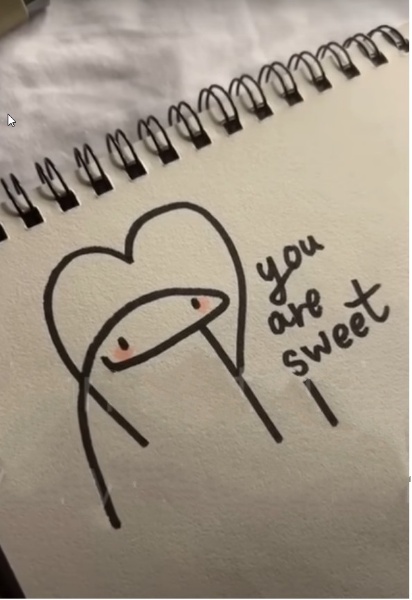 you
are
sweet